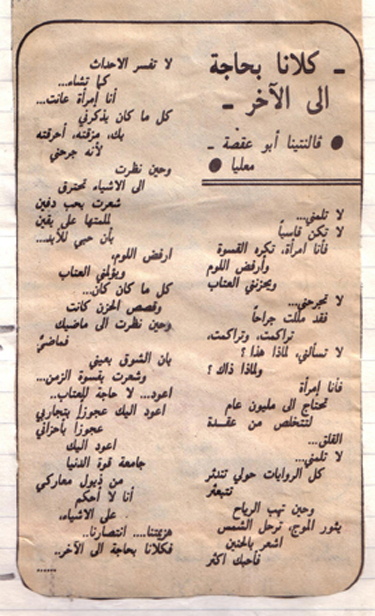 ـ كلانا بحاجة
الى الآخر ـ
● ڤالنتينا أبو عقصة ـ
معليا ●
لا تلمني...
لا تكن قاسياً
فأنا امرأة، تكره القسوة
وأرفض اللوم
ويحزنني العتاب
لا تجرحني...
فقد مللت جراحاً
تراكمت، وتراكمت،
لا تسألني، لماذا هذا ؟
ولماذا ذاك ؟
فأنا إمرأة
تحتاج الى مليون عام
لتتخلص من عقدة
القلق...
لا تلمني...
كل الروايات حولي تندثر
تتبعثر
وحين تهب الرياح
يثور الموج، ترحل الشمس
اشعر بالحنين
فأحبك اكثر
لا تفسر الاحداث
كما تشاء...
أنا إمرأة عانت...
كل ما كان يذكرني
بك، مزقته، أحرقته
لأنه جرحني
وحين نظرت
الى الاشياء تحترق
شعرت بحب دفين
للمتها على يقين
بأن حبي للأبد...
ارفض اللوم،
ويؤلمني العتاب
كل ما كان كان...
وقصص الحزن كانت
وحين نظرت الى ماضيك
فماضيَّ
بان الشوق بعيني
وشعرت بقسوة الزمن...
اعود... لا حاجة للعتاب..
اعود اليك عجوزاً بتجاربي
عجوزاً بأحزاني
اعود اليك
جامعة قوة الدنيا
من ذيول معاركي
أنا لا أحكم
على الاشياء،
هزيمتنا.... انتصارنا..
فكلانا بحاجة الى الآخر..
......